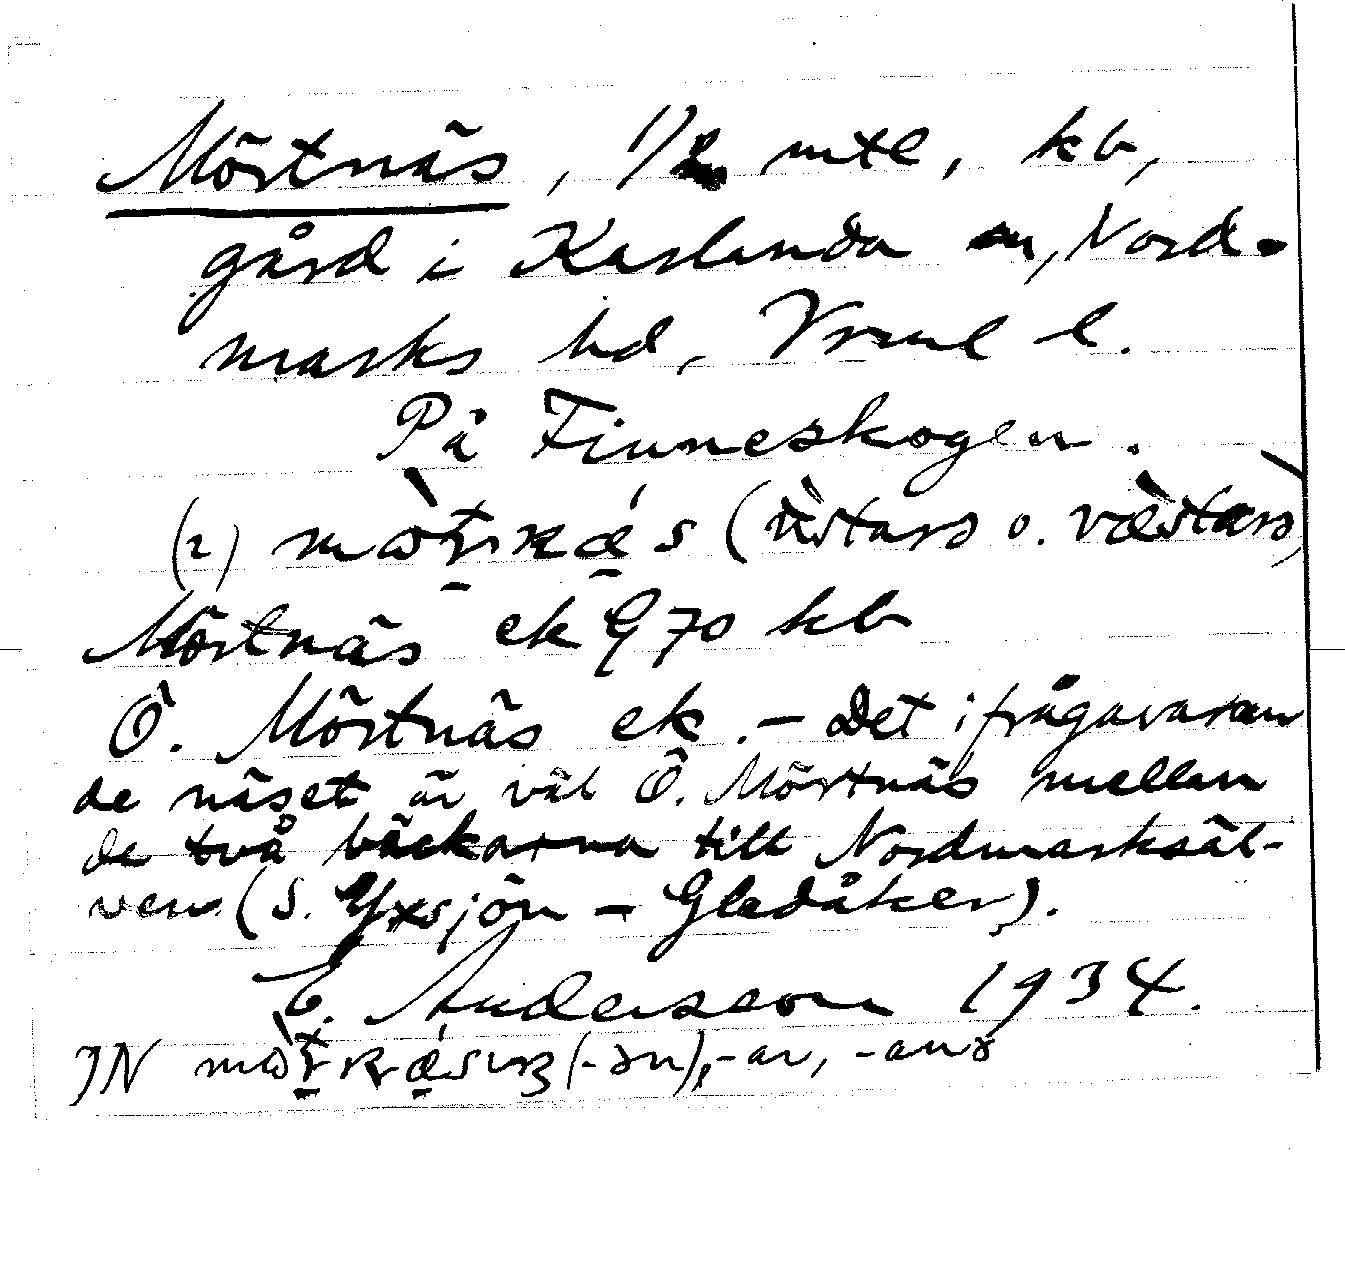 Mörtnäs, 1/2 mtl, kb,
gård i Karlanda sn, Nord-
marks hd, Vrml l.
På Finneskogen.
(2) (östars o. västars)
Mörtnäs ek G 70 kb
Ö. Mörtnäs ek. - Det ifrågavaran
de näset är väl Ö. Mörtnäs mellan
de två bäckarna till Nordmarksäl-
ven (S. Yxsjön - Gladåker).
E. Andersson 1934.
IN (-ən), -ar, -anə